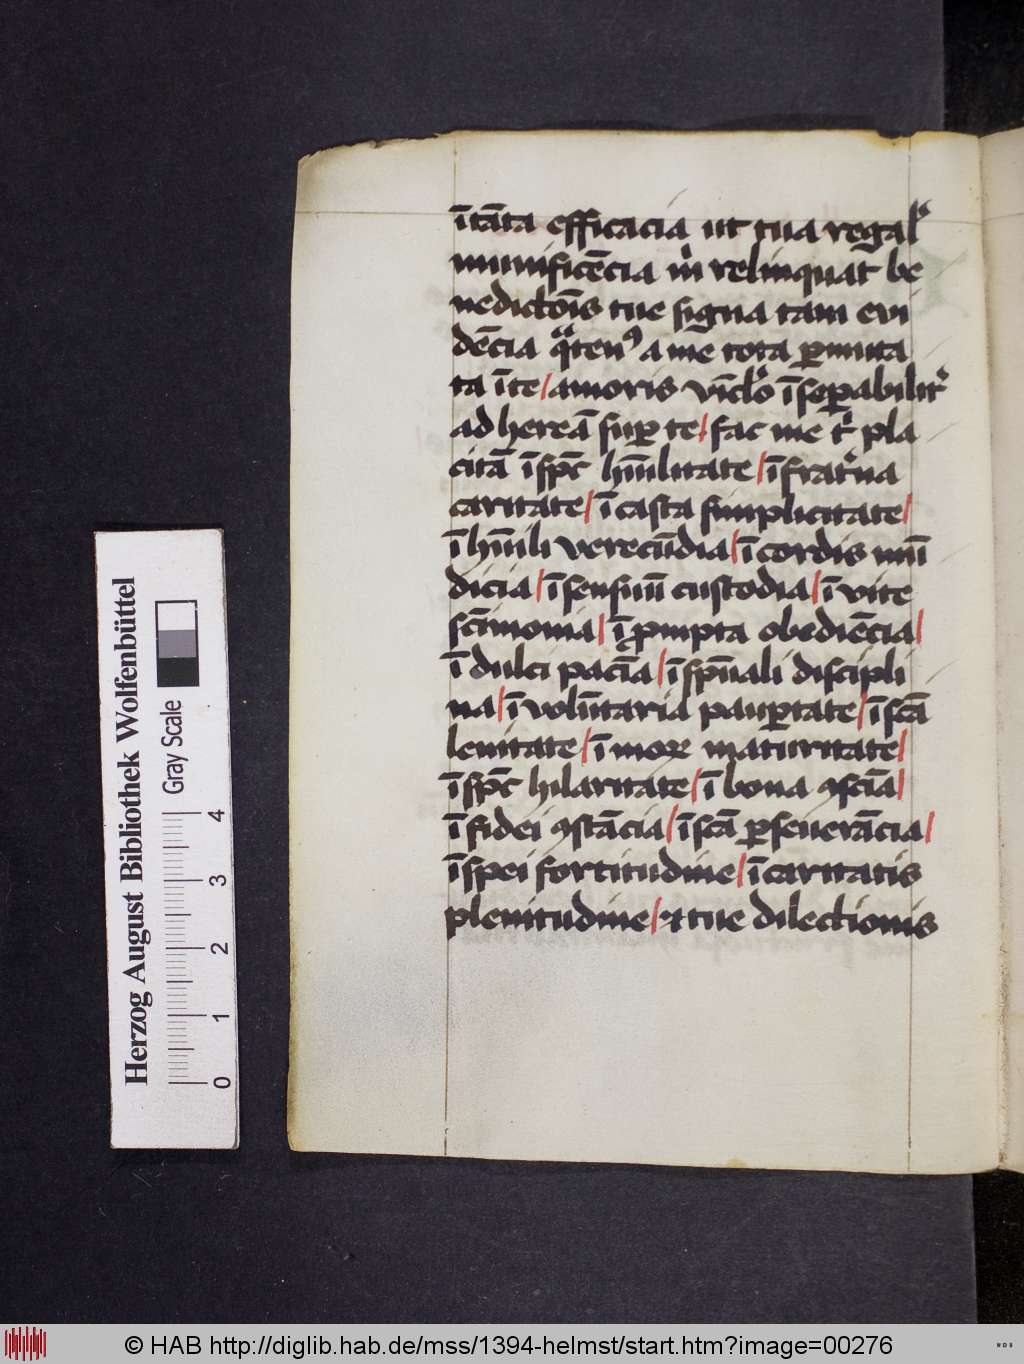 ītāta efficacia ut tua regal᷒
munificēcia m̄ relinquat be
nedictōis tue signa tam evi
dēcia qͣten⁹ a me tota ꝑmuta
ta īte / amoris vīclo īseꝑabilit᷒
ad hereā suꝑ te / fac me t᷒ pla
citā ī spc̄ hūilitate / ī frat᷒na
caritate / ī casta simplicitate /
ī hūili verecūdia / ī cordis mūi
dicia / ī sensuū custodia / ī vite
scīmonia / ī ꝓmpta obediēcia /
ī dulci paciā / ī spūali discipli
na / ī volūtaria pauꝑtate / ī scā
lenitate / ī moꝝ maturitate /
ī spc̄ hilaritate / ī bona ꝯsciā /
ī fidei ꝯstācia / ī scā ꝑseuerācia /
ī spei fortitudine / ī caritatis
plenitudine / ⁊ tue dilectionis
Herzog August Bibliothek Wolfenbüttel
Gray Scale
0 1 2 3 4
© HAB http://diglib.hab.de/mss/1394-helmst/start.htm?image=00276